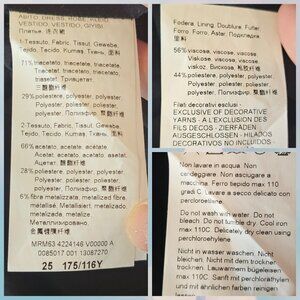 ABITO, DRESS, ROBE, KLEID
VESTIDO, VESTIDO, GIYIBA
Платье, 连衣裙
1-Tessuto, Fabric, Tissut, Gewebe
Tejido, Tecido, Kumaş, Ткань, 面料
71% triacetato, triacetate, triacetate,
triacetato, triacetato, triacetato,
triasetat, Триацетат,
三醋酯纤维
29% poliestere, polyester, polyester,
Polyester, poliéster, poliéster,
polyester, полиэстер, 聚酯纤维
2-Tessuto, Fabric, Tissut, Gewebe
Tejido, Tecido, Kumaş, Ткань, 面料
66% acetato, acetate, acetate,
Acetat, acetato, acetato, asetat,
Ацетат, 醋酯纤维
28% poliestere, polyester, polyester,
Polyester, poliéster, poliéster,
polyester, полиэстер, 聚酯纤维
6% fibra metallizzata, metallised
metallisée, Metallisiert, metalizado,
metalizada, metalize
Металлизированно,
金属镀膜纤维
MRM53 4224146 V00000 A
0085017 001 13087270
25 175/116Y
Fodera, Lining, Doublure, Futter
Forro, Forro, Astar, Подкладка,
里料
56% viscosa, viscose, viscose,
Viskose, viscosa, viscose,
viskoz, Вискоза, 粘胶纤维
44% poliestere, polyester, polyester,
Polyester, poliéster, poliéster,
polyester, полиэстер, 聚酯纤维
Filati decorativi esclusi
EXCLUSIVE OF DECORATIVE
YARNS - A L'EXCLUSION
DES FILS DECOS - ZIERFÄDEN
AUSGESCHLOSSEN - HILADOS
DECORATIVOS NO INCLUIDOS -
Non lavare in acqua. Non
candeggiare. Non asciugare a
macchina. Ferro tiepido max 110
gradi C. Lavare a secco delicato con
percloroetilene
Do not wash with water. Do not
bleach. Do not tumble dry. Cool iron
max 110C. Delicately dry clean using
perchloroethylene
Nicht in wasser waschen. Nicht
bleichen. Nicht mit dem trockner
trocknen. Lauwarmem bügeleisen
max 110C. Sanft in der reinigung